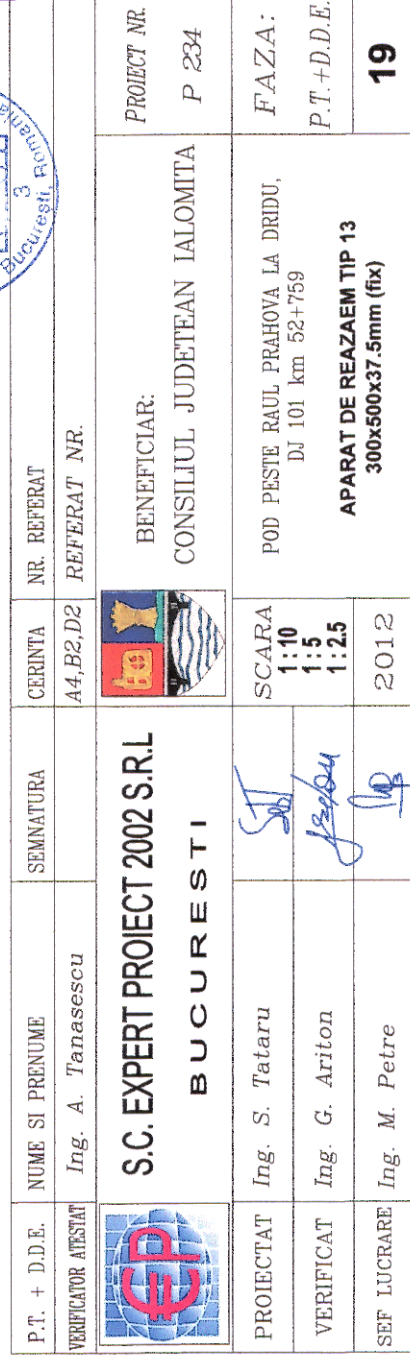 P.T. + D.D.E. NUME SI PRENUME SEMNATURA CERINTA NR. REFERAT
VERIFICATOR ATESTAT Ing. A. Tanasescu A4,B2,D2 REFERAT NR.
EP
S.C. EXPERT PROIECT 2002 S.R.L
BUCURESTI
BENEFICIAR:
CONSILIUL JUDETEAN IALOMITA
PROIECT NR.
P 234
PROIECTAT Ing. S. Tataru
VERIFICAT Ing. G. Ariton
SEF LUCRARE Ing. M. Petre
SCARA
1:10
1:5
1:2.5
2012
POD PESTE RAUL PRAHOVA LA DRIDU,
DJ 101 km 52+759
APARAT DE REAZAEM TIP 13
300x500x37.5mm (fix)
FAZA:
P.T.+D.D.E.
19
3
Bucureşti, Romania